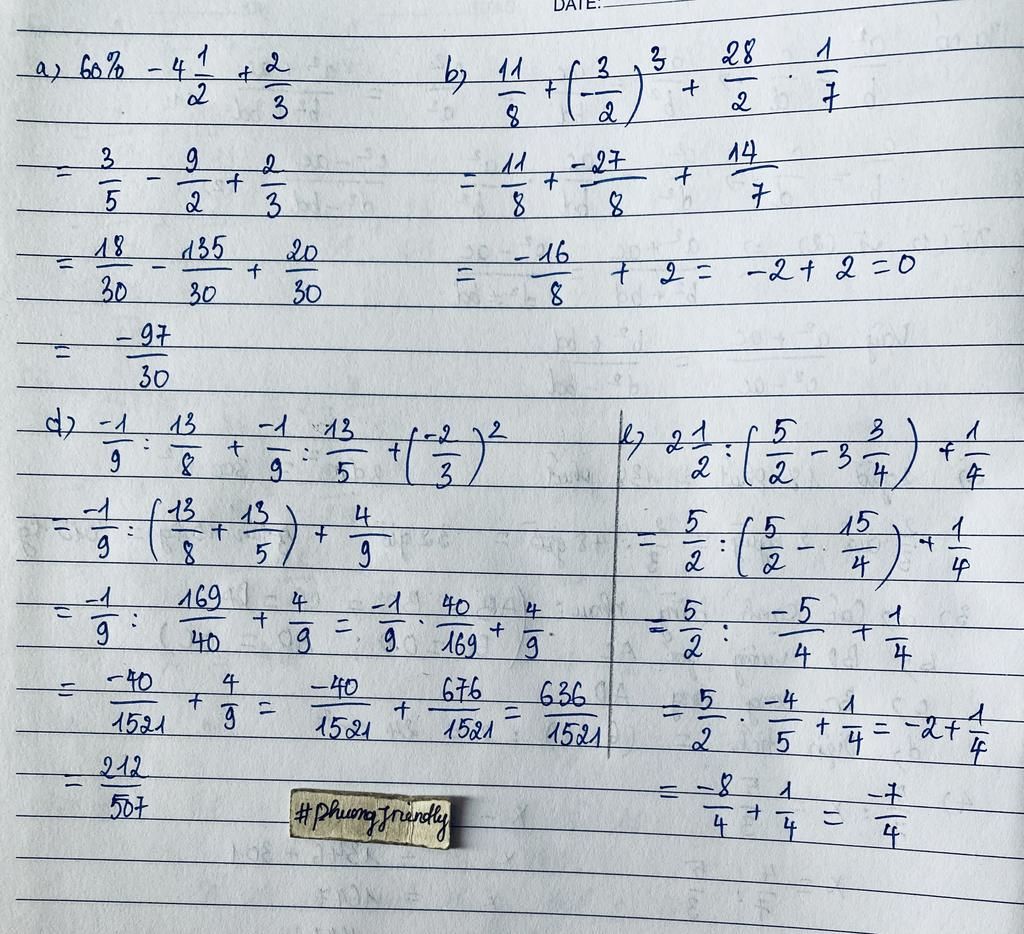 DATE:
a) 60% - 4 1/2 + 2/3
= 3/5 - 9/2 + 2/3
= 18/30 - 135/30 + 20/30
= -97/30
b) 11/8 + (-3/2)^3 + 28/2 . 1/7
= 11/8 + -27/8 + 14/7
= -16/8 + 2 = -2 + 2 = 0
d) -1/9 : 13/8 + -1/9 : 13/5 + (-2/3)^2
= -1/9 : (13/8 + 13/5) + 4/9
= -1/9 : 169/40 + 4/9 = -1/9 . 40/169 + 4/9.
= -40/1521 + 4/9 = -40/1521 + 676/1521 = 636/1521
= 212/507
e) 2 1/2 : (5/2 - 3 3/4) + 1/4
= 5/2 : (5/2 - 15/4) + 1/4
= 5/2 : -5/4 + 1/4
= 5/2 . -4/5 + 1/4 = -2 + 1/4
= -8/4 + 1/4 = -7/4
#phuongfriendly